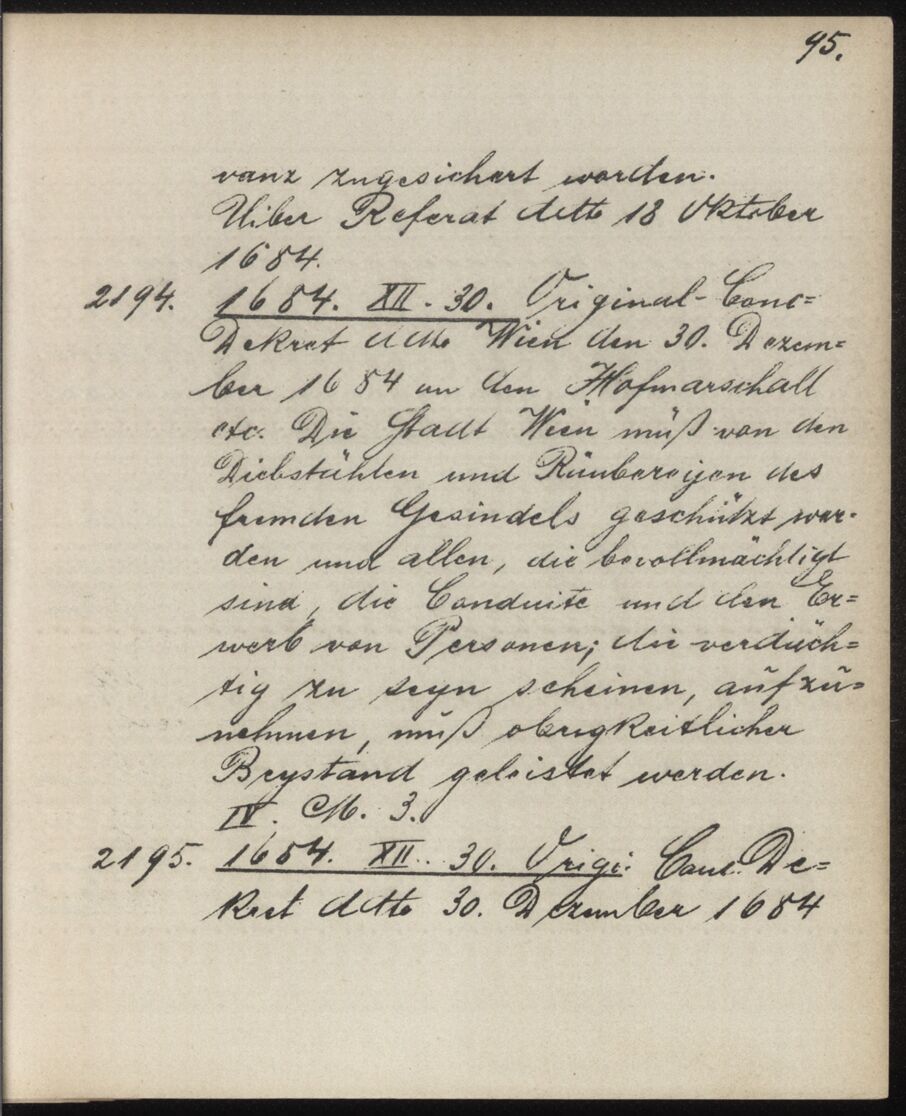 95.
vanz zugesichert worden.
Uiber Referat dtto 18 Oktober
1684.
2194. 1684. XII. 30. Original-Conc=
Dekret dtto Wien den 30. Dezem=
ber 1684 an den Hofmarschall
etc. Die Stadt Wien muß von den
Diebstählen und Räubereyen des
fremden Gesindels geschützt wer-
den und allen, die bevollmächtigt
sind, die Conduite und den Er=
werb von Personen, die verdäch=
tig zu seyn scheinen, aufzu=
nehmen, muß obrigkeitlicher
Beystand geleistet werden.
IV. M. 3.
2195. 1684. XII. 30. Origi. Conc. De=
kret dtto 30. Dezember 1684